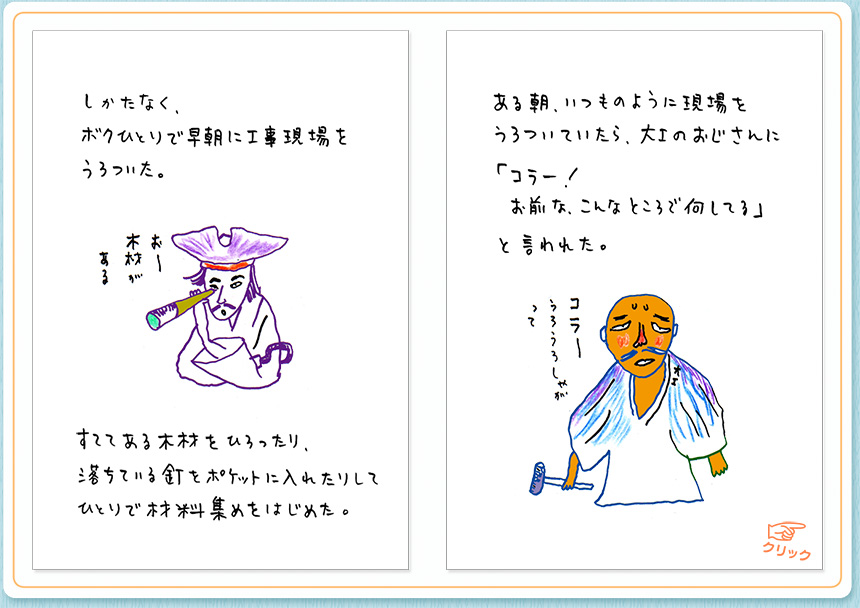 しかたなく、
ボクひとりで早朝に工事現場を
うろついた。
おー
木材が
ある
すててある木材をひろったり、
落ちている釘をポケットに入れたりして
ひとりで材料集めをはじめた。
ある朝、いつものように現場を
うろついていたら、大工のおじさんに
「コラー!
お前な、こんなところで何してる」
と言われた。
コラー
うろうろしやが
って
大工
クリック